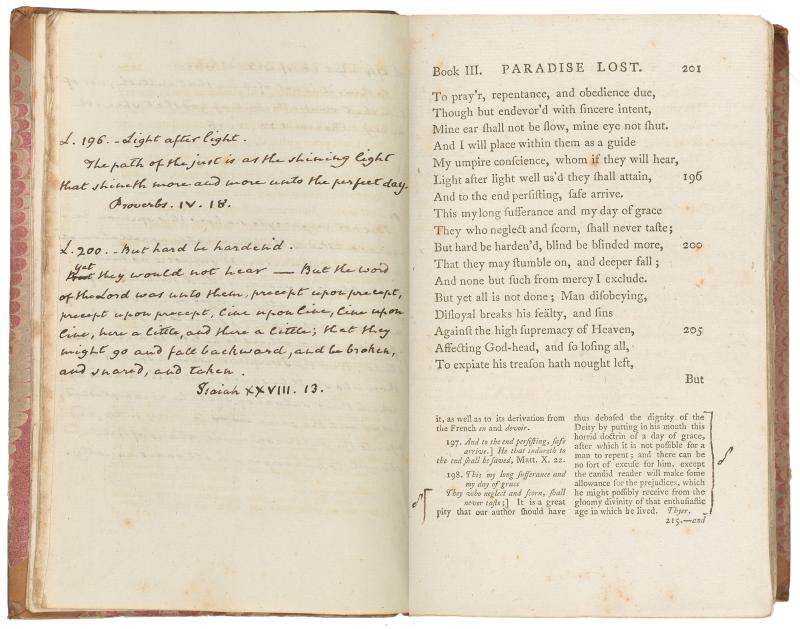 L. 196. - Light after light.
The path of the just is as the shining light
that shineth more and more unto the perfect day.
Proverbs. IV. 18.
L. 200. - But hard be harden'd.
yet
they would not hear — But the word
of the Lord was unto them, precept upon precept,
precept upon precept, line upon line, line upon
line, here a little, and there a little; that they
might go and fall backward, and be broken,
and snared, and taken.
Isaiah XXVIII. 13.
Book III. PARADISE LOST. 201
To pray'r, repentance, and obedience due,
Though but endevor'd with ſincere intent,
Mine ear ſhall not be ſlow, mine eye not ſhut.
And I will place within them as a guide
My umpire conſcience, whom if they will hear,
Light after light well us'd they ſhall attain, 196
And to the end perſiſting, ſafe arrive.
This my long ſufferance and my day of grace
They who neglect and ſcorn, ſhall never taſte;
But hard be harden'd, blind be blinded more, 200
That they may ſtumble on, and deeper fall;
And none but ſuch from mercy I exclude.
But yet all is not done; Man diſobeying,
Diſloyal breaks his feälty, and ſins
Againſt the high ſupremacy of Heaven, 205
Affecting God-head, and ſo loſing all,
To expiate his treaſon hath nought left,
But
it, as well as to its derivation from
the French en and devoir.
197. And to the end perſiſting, ſafe
arrive.] He that indureth to
the end ſhall be ſaved, Matt. X. 22.
198. This my long ſufferance and
my day of grace
They who neglect and ſcorn, ſhall
never taſte;] It is a great
pity that our author ſhould have
thus debaſed the dignity of the
Deity by putting in his mouth this
horrid doctrin of a day of grace,
after which it is not poſſible for a
man to repent; and there can be
no ſort of excuſe for him, except
the candid reader will make ſome
allowance for the prejudices, which
he might poſſibly receive from the
gloomy divinity of that enthuſiaſtic
age in which he lived. Thyer.
215.—and